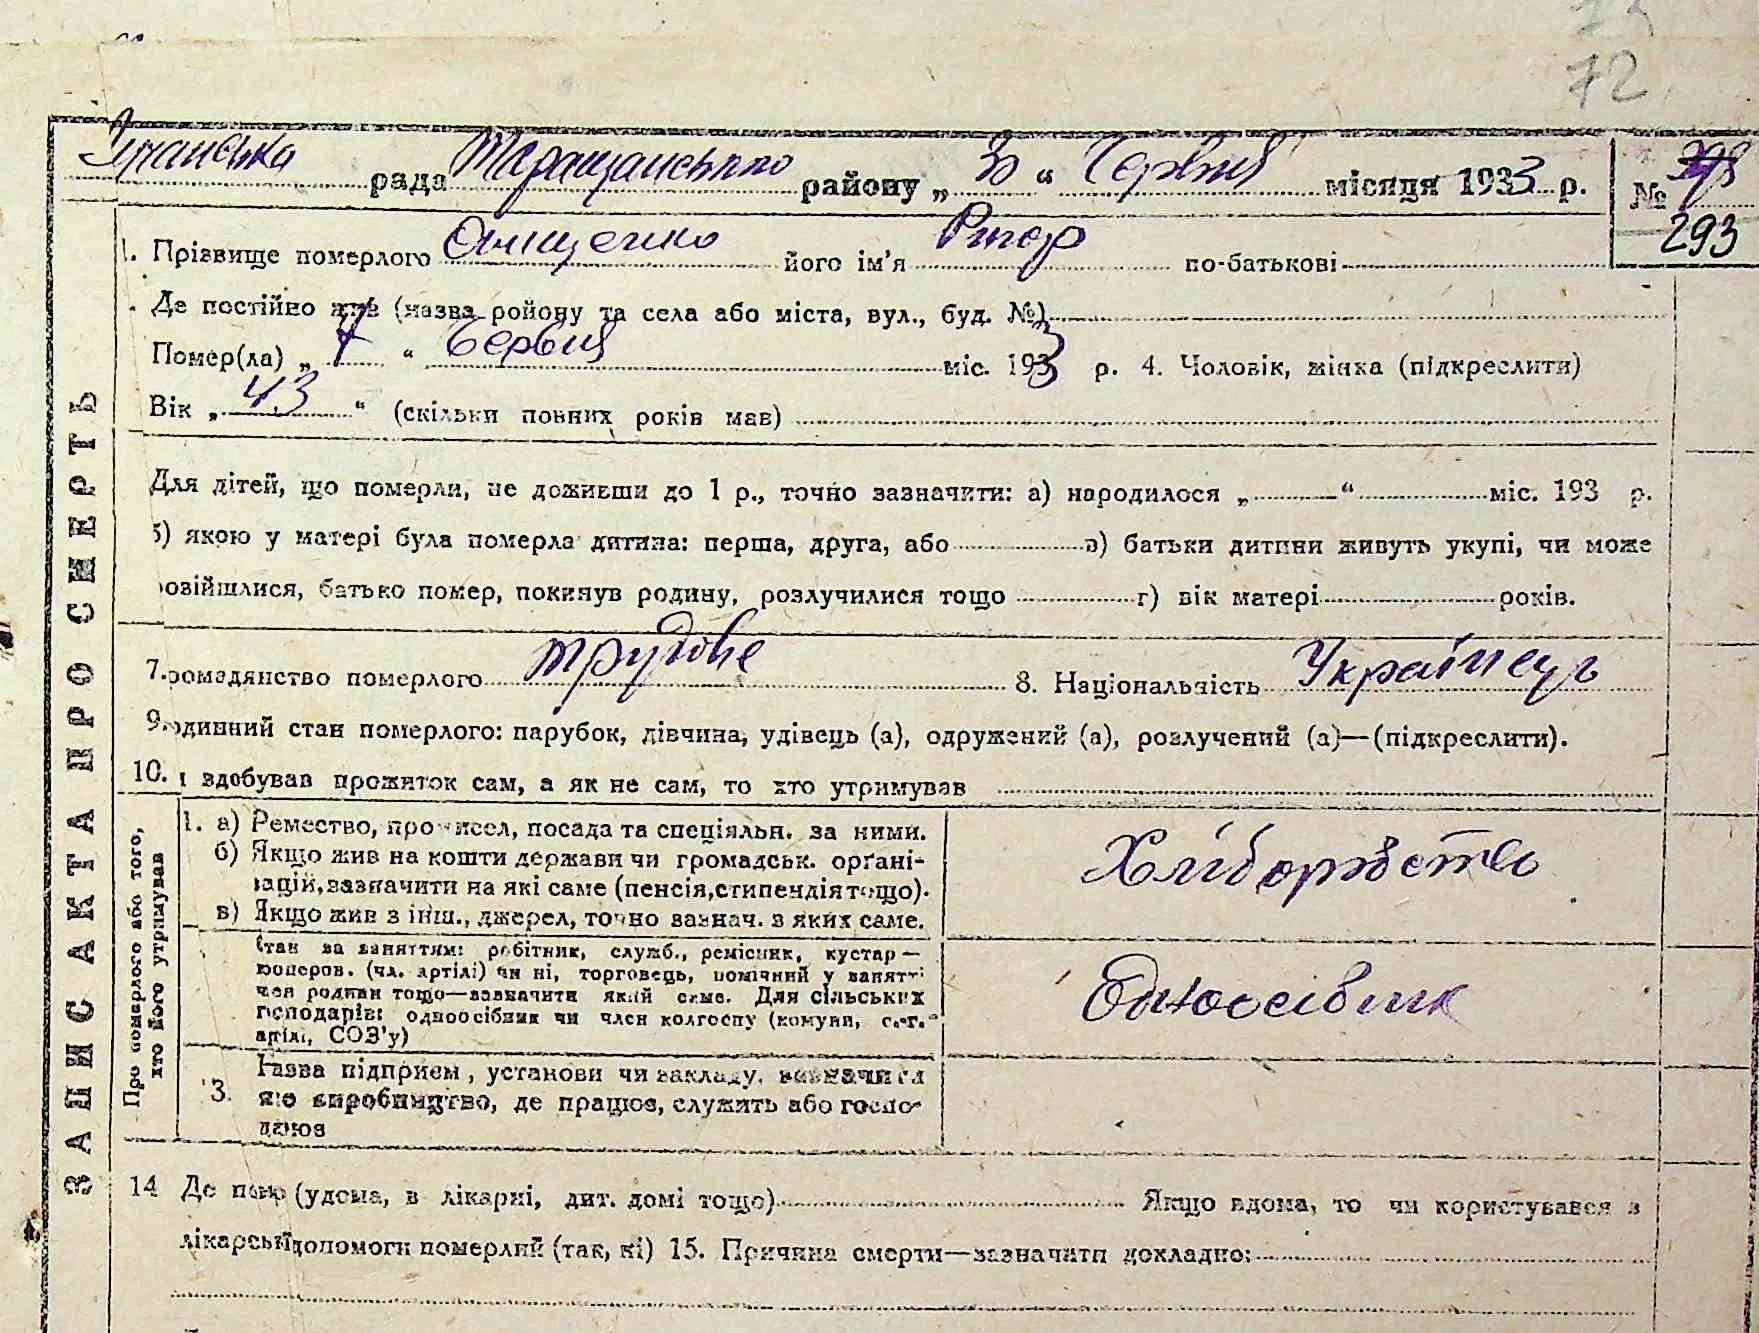 72
рада Таращанського району „ 30 “ Червня місяця 1933 р. №
293
1. Прізвище померлого Онищенко його ім'я Ригор по-батькові
Де постійно жив (назва ройону та села або міста, вул., буд. №)
Помер(ла) „ 7 “ Червня міс. 1933 р. 4. Чоловік, жінка (підкреслити)
Вік „ 43 “ (скільки повних років мав)
Для дітей, що померли, не доживши до 1 р., точно зазначити: а) народилося „ “ міс. 193 р.
б) якою у матері була померла дитина: перша, друга, або в) батьки дитини живуть укупі, чи може
розійшлися, батько помер, покинув родину, розлучилися тощо г) вік матері років.
7. ромадянство померлого трудове 8. Національність Українець
9. одинний стан померлого: парубок, дівчина, удівець (а), одружений (а), розлучений (а)—(підкреслити).
10. здобував прожиток сам, а як не сам, то хто утримував
ЗАПИС АКТА ПРО СМЕРТЬ
Про померлого або того, хто його утримував
1. а) Ремество, промисел, посада та спеціяльн. за ними. Хліборобство
б) Якщо жив на кошти держави чи громадськ. органі-
зацій, зазначити на які саме (пенсія, стипендія тощо).
в) Якщо жив з інш., джерел, точно вазнач. з яких саме.
Стан за заняттям: робітник, служб., ремісник, кустар— Одноосібник
кооперов. (чл. артілі) чи ні, торговець, помічний у занятті
чея родини тощо—зазначити який саме. Для сільських
господарів: одноосібник чи член колгоспу (комуни, с.-г.
артілі, СОЗ'у)
3. Назва підприєм, установи чи закладу. зазначити
яке виробництво, де працює, служить або госпо-
дарює
14 Де помер (удома, в лікарні, дит. домі тощо) Якщо вдома, то чи користувався з
лікарськ допомоги померлий (так, ні) 15. Причина смерти—зазначити докладно: